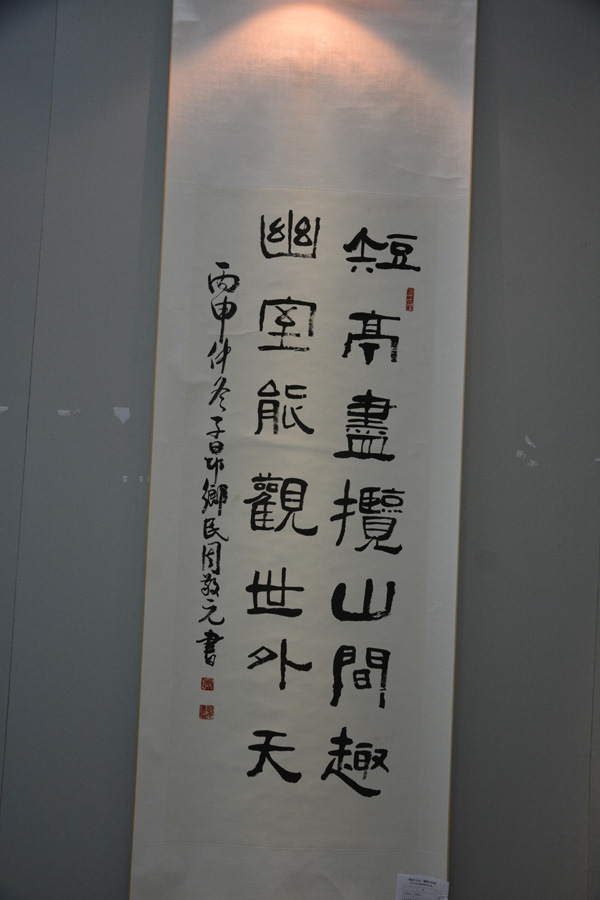 短亭盡攬山間趣
幽室能觀世外天
丙申仲冬子昂鄉民周敬元書